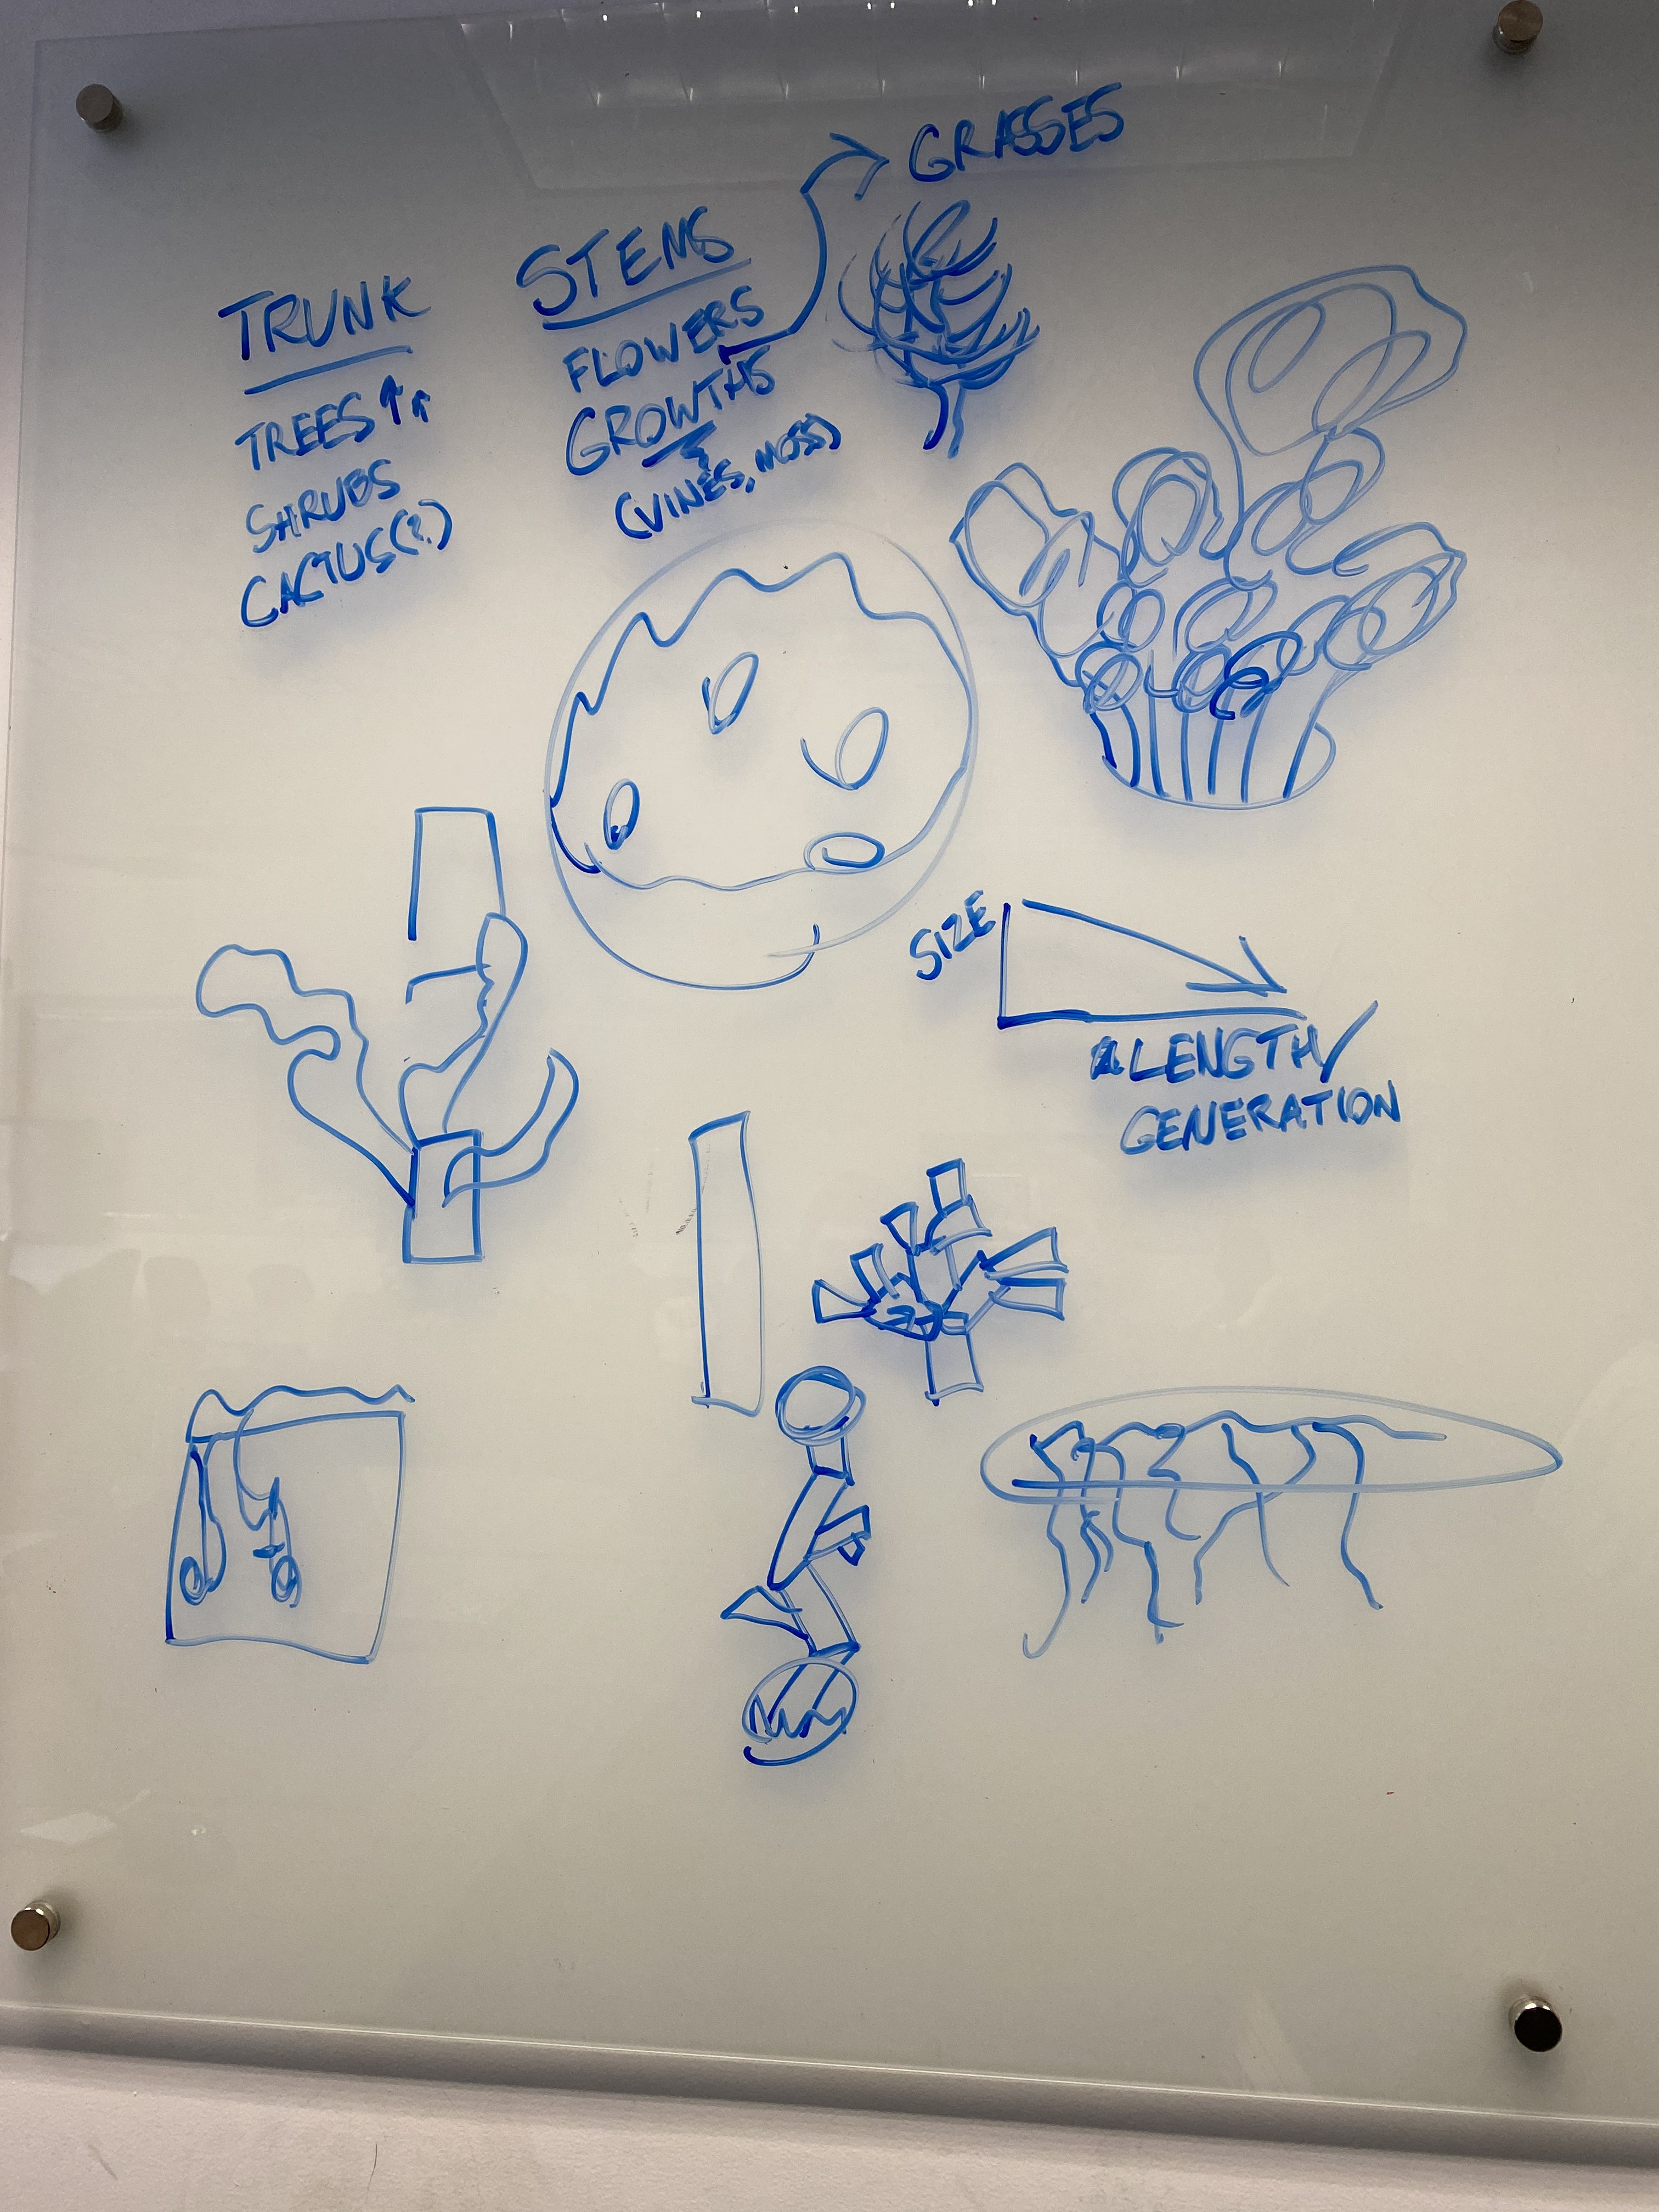 TRUNK
TREES ↑↑
SHRUBS
CACTUS(?)
STEMS
FLOWERS
GROWTHS
(VINES, MOSS)
GRASSES
SIZE
LENGTH/
GENERATION